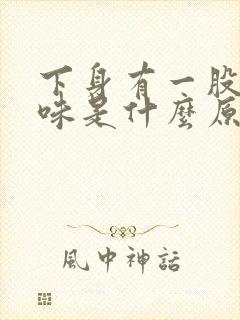 下身有一股
味是什麼原
風中神話